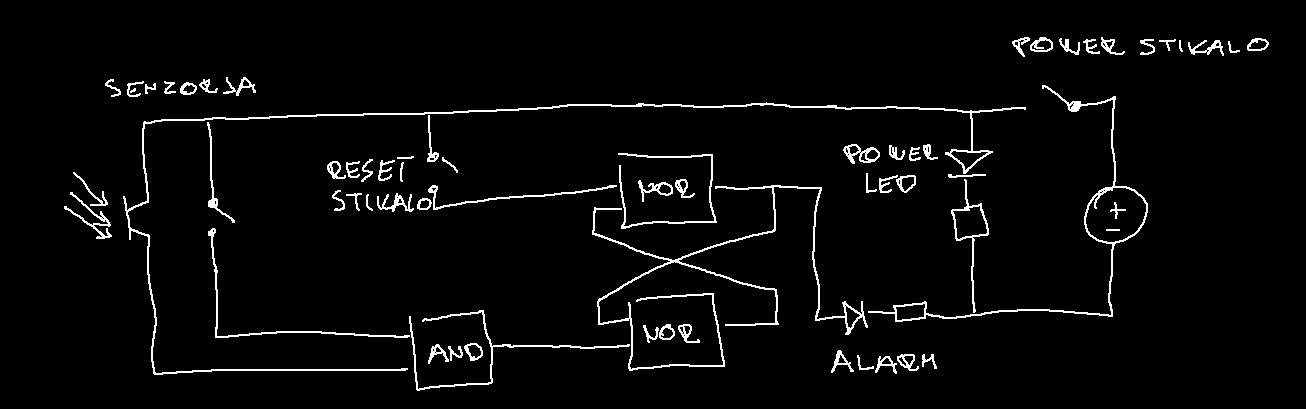 POWER STIKALO
SENZORJA
RESET
STIKALO
POWER
LED
NOR
+
-
NOR
AND
ALARM